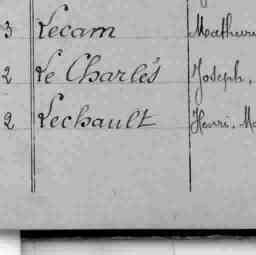 3 Lecam Mathuri
2 Le Charlès Joseph.
2 Lechault Henri. Ma